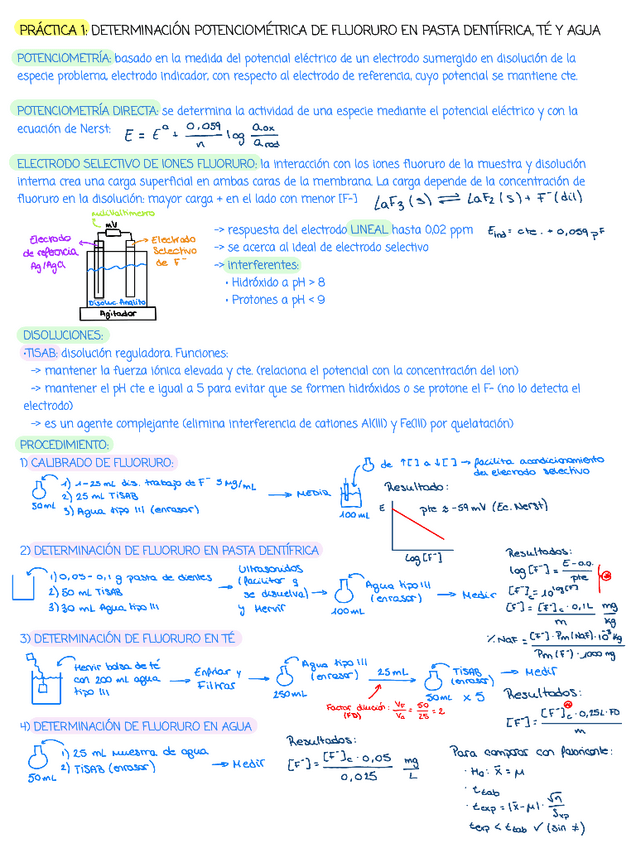 PRÁCTICA 1: DETERMINACIÓN POTENCIOMÉTRICA DE FLUORURO EN PASTA DENTÍFRICA, TÉ Y AGUA
POTENCIOMETRÍA: basado en la medida del potencial eléctrico de un electrodo sumergido en disolución de la
especie problema, electrodo indicador, con respecto al electrodo de referencia, cuyo potencial se mantiene cte.
POTENCIOMETRÍA DIRECTA: se determina la actividad de una especie mediante el potencial eléctrico y con la
ecuación de Nerst: E = Eº + 0,059/n log aox/ared
ELECTRODO SELECTIVO DE IONES FLUORURO: la interacción con los iones fluoruro de la muestra y disolución
interna crea una carga superficial en ambas caras de la membrana. La carga depende de la concentración de
fluoruro en la disolución: mayor carga + en el lado con menor [F-] LaF3 (s) ⇌ LaF2 (s) + F⁻ (dil)
milivoltímetro
mV
Electrodo de referencia Ag/AgCl
Electrodo Selectivo de F⁻
Disoluc. Analito
Agitador
-> respuesta del electrodo LINEAL hasta 0,02 ppm Eind = cte. + 0,059 pF
-> se acerca al ideal de electrodo selectivo
-> interferentes:
• Hidróxido a pH > 8
• Protones a pH < 9
DISOLUCIONES:
•TISAB: disolución reguladora. Funciones:
-> mantener la fuerza iónica elevada y cte. (relaciona el potencial con la concentración del ion)
-> mantener el pH cte e igual a 5 para evitar que se formen hidróxidos o se protone el F- (no lo detecta el
electrodo)
-> es un agente complejante (elimina interferencia de cationes Al(III) y Fe(III) por quelatación)
PROCEDIMIENTO:
1) CALIBRADO DE FLUORURO:
50mL
1) 1-25 mL dis. trabajo de F⁻ 5 µg/mL
2) 25 mL TISAB
3) Agua tipo III (enrasar)
→ MEDIR
100mL
de ↑[ ] a ↓[ ] → facilita acondicionamiento
del electrodo selectivo
Resultado:
E
pte ≈ -59 mV (Ec. Nerst)
log [F⁻]
2) DETERMINACIÓN DE FLUORURO EN PASTA DENTÍFRICA
1) 0,05 - 0,1 g pasta de dientes
2) 50 mL TISAB
3) 30 mL Agua tipo III
Ultrasonidos
(facilitar q
se disuelva)
y Hervir
100mL
Agua tipo III
(enrasar)
→ Medir
Resultados:
log [F⁻] = E - o.o./pte
[F⁻]c = 10^log[F⁻]
[F⁻] = [F⁻]c · 0,1L/m mg/kg
% NaF = [F⁻] · Pm(NaF) · 10⁻³ kg/Pm (F⁻) · 1000 mg
3) DETERMINACIÓN DE FLUORURO EN TÉ
Hervir bolsa de té
con 200 mL agua
tipo III
Enfriar y
Filtrar
250mL
Agua tipo III
(enrasar)
25 mL
Factor dilución: VF/Va = 50/25 = 2
(FD)
50mL x 5
TISAB
(enrasar)
→ Medir
Resultados:
[F⁻] = [F⁻]c · 0,25L · FD/m
4) DETERMINACIÓN DE FLUORURO EN AGUA
50mL
1) 25 mL muestra de agua
2) TISAB (enrasar)
→ Medir
Resultados:
[F⁻] = [F⁻]c · 0,05/0,025 mg/L
Para comparar con fabricante:
· H0: x̄ = µ
· ttab
· texp = |x̄ - µ| · √n/Sxp
texp < ttab ✓ (sin ≠)